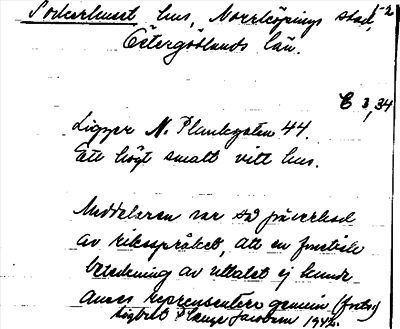 Sockerhuset hus, Norrköpings stad, 1-2
Östergötlands län.
E 3,34
Ligger N. Plankgatan 44.
Ett högt smalt vitt hus.
Meddelaren var så påverkad
av riksspråket, att en fonetisk
beteckning av uttalet ej kunde
anses representera genuin (forts.)
Plange Jacobson 1942.